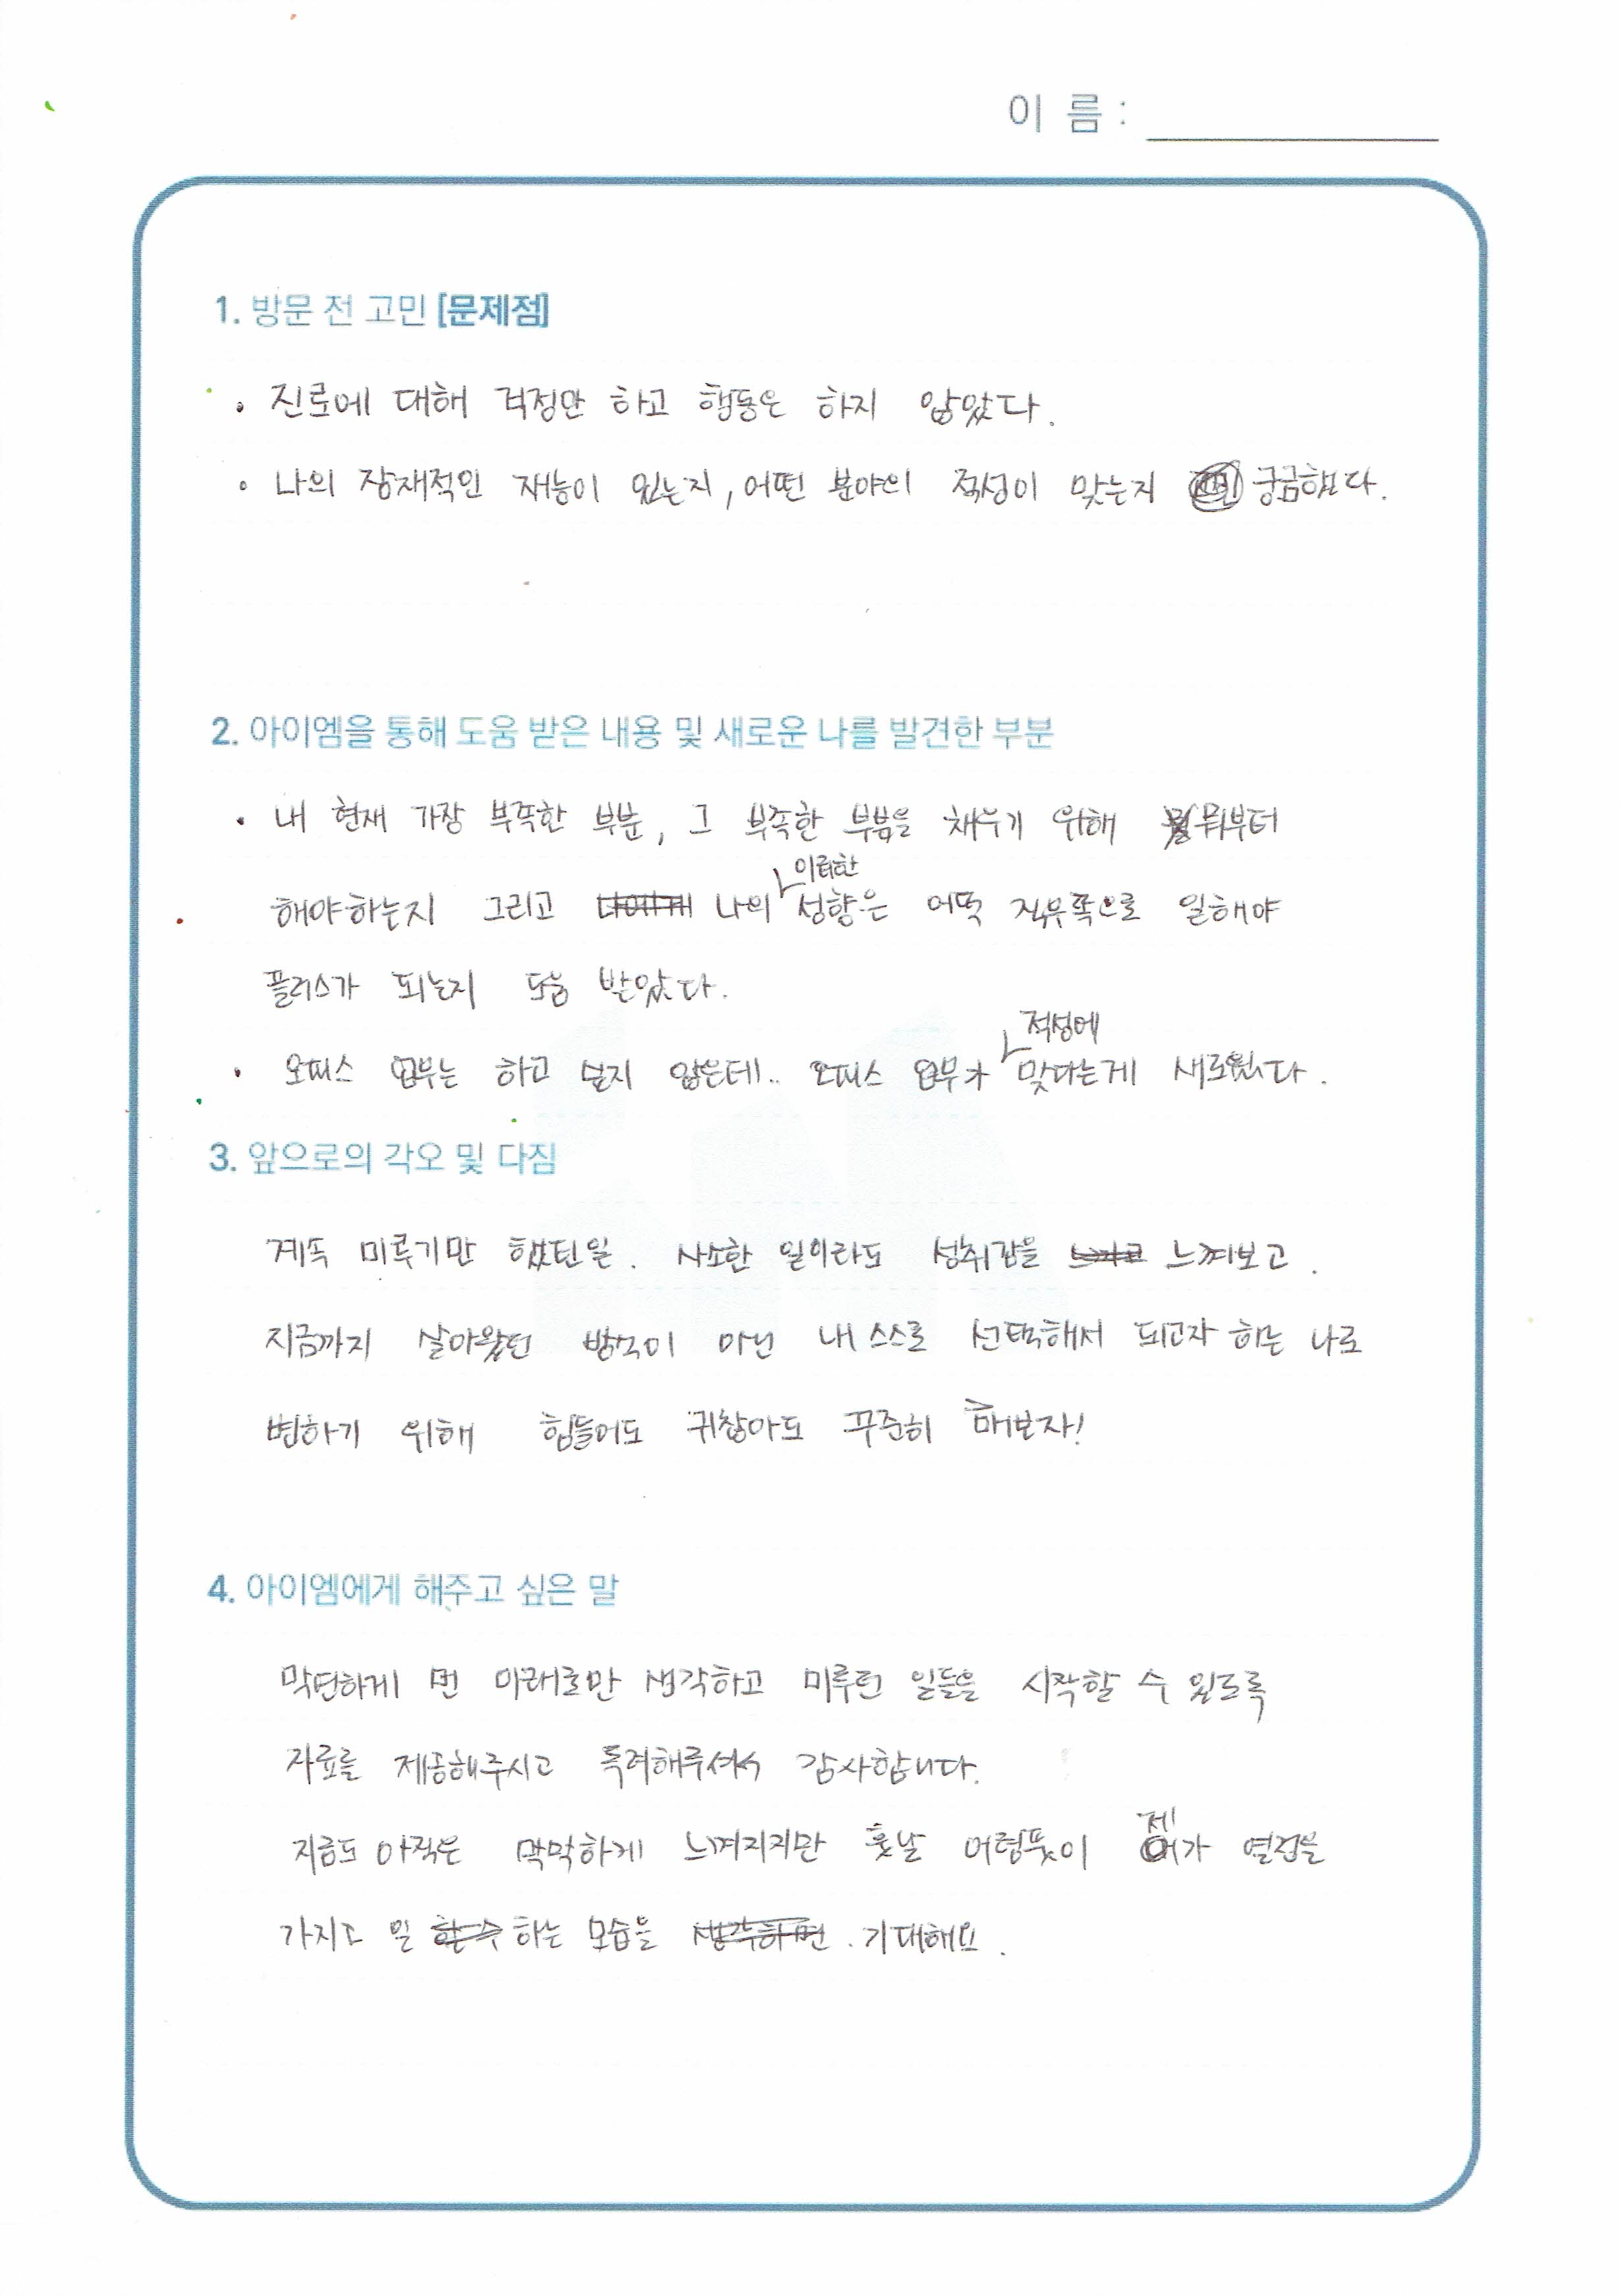 이 름 :
1. 방문 전 고민 [문제점]
· 진로에 대해 걱정만 하고 행동은 하지 않았다.
· 나의 잠재적인 재능이 있는지, 어떤 분야의 적성이 맞는지 궁금했다.
2. 아이엠을 통해 도움 받은 내용 및 새로운 나를 발견한 부분
· 내 현재 가장 부족한 부분, 그 부족한 부분을 채우기 위해 뭐부터
해야하는지 그리고 나의 이러한 성향은 어떤 직유쪽으로 일해야
플러스가 되는지 도움 받았다.
· 오피스 업무는 하고 싶지 않은데.. 오피스 업무가 적성에 맞다는게 새로웠다.
3. 앞으로의 각오 및 다짐
계속 미루기만 했던일. 사소한 일이라도 성취감을 느껴보고.
지금까지 살아왔던 방식이 아닌 내 스스로 선택해서 되고자 하는 나로
변하기 위해 힘들어도 귀찮아도 꾸준히 해보자!
4. 아이엠에게 해주고 싶은 말
막연하게 먼 미래로만 생각하고 미루던 일들을 시작할 수 있도록
자료를 제공해주시고 독려해주셔서 감사합니다.
지금도 아직은 막막하게 느껴지지만 훗날 어렴풋이 제가 열정을
가지고 일 하는 모습을 기대해요.